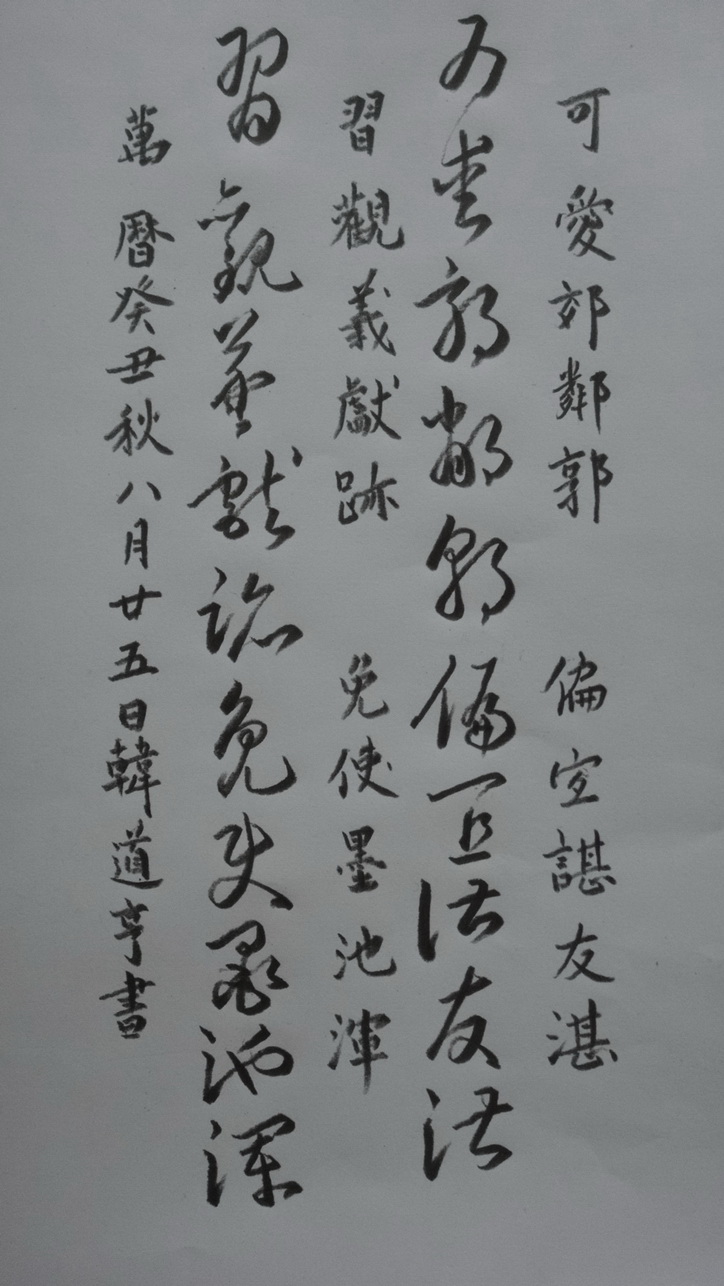 可愛郊鄰郭 偏宜諶友湛
可愛郊鄰郭偏宜諶友湛
習觀羲獻跡 免使墨池渾
習觀羲獻跡免使墨池渾
萬曆癸丑秋八月廿五日韓道亨書